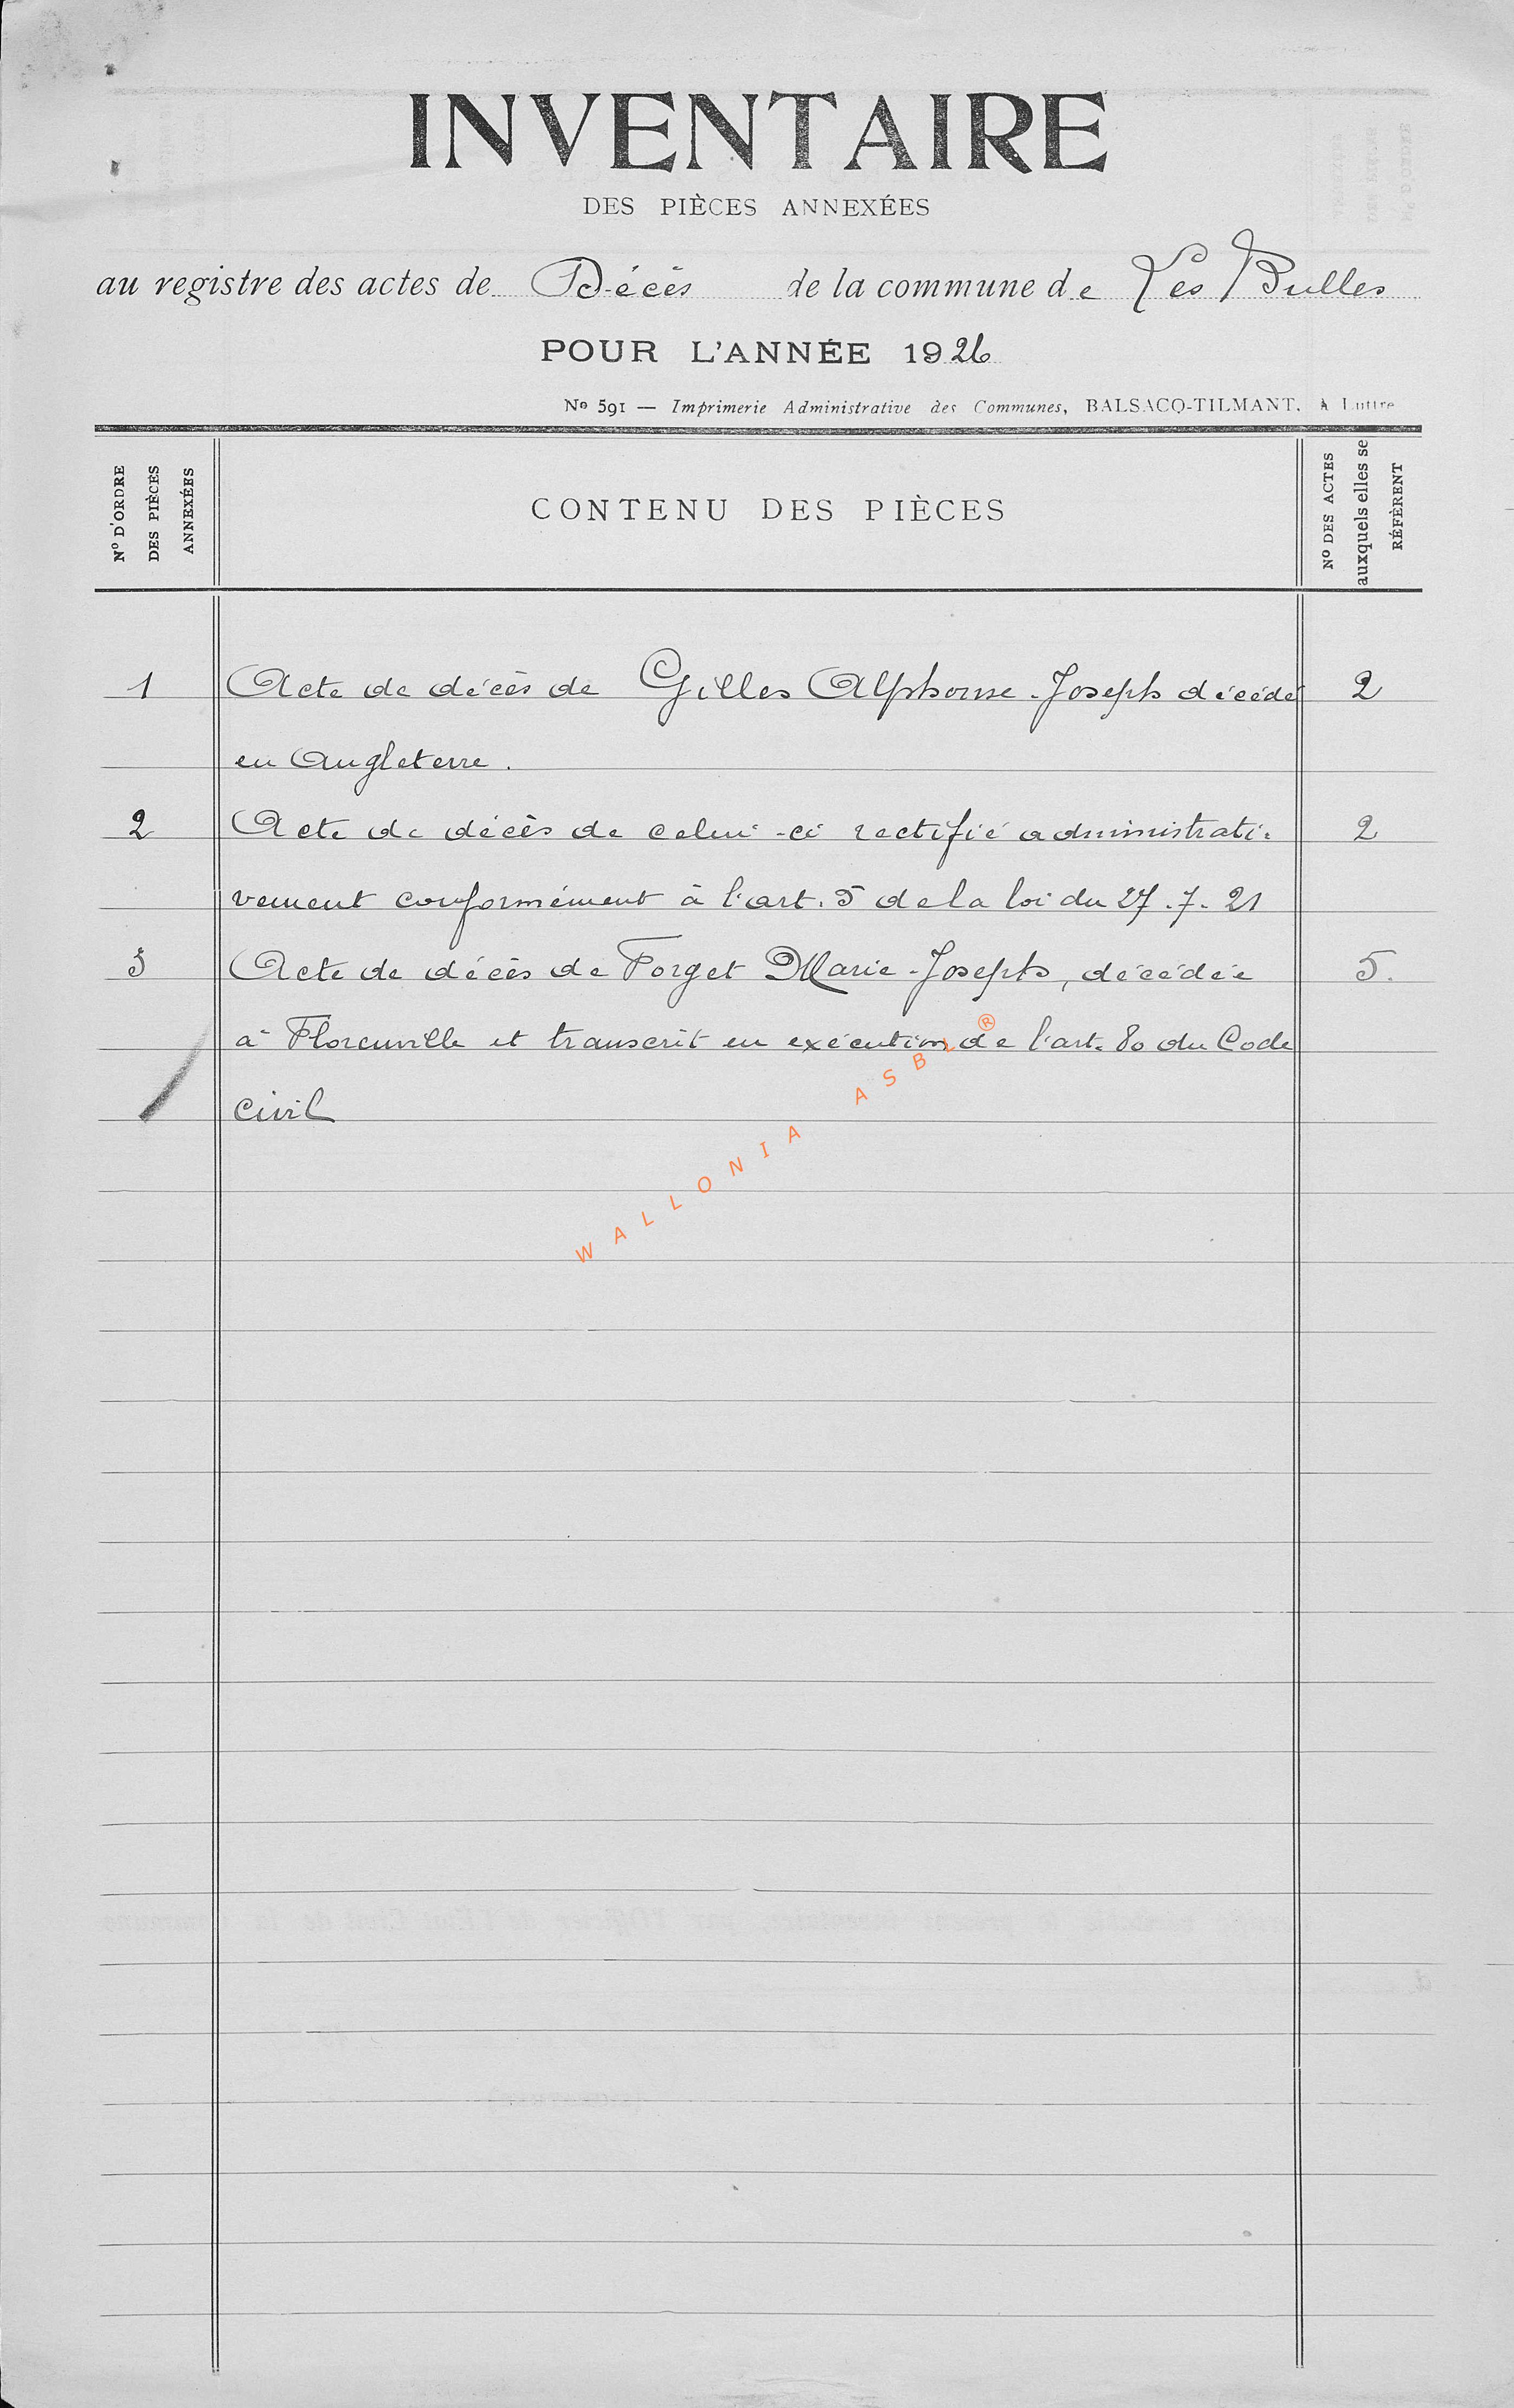 INVENTAIRE
DES PIÈCES ANNEXÉES
au registre des actes de Décès de la commune de Les Bulles
POUR L'ANNÉE 1926
Nº 591 — Imprimerie Administrative des Communes, BALSACQ-TILMANT, à Luttre
Nº D'ORDRE
DES PIÈCES
ANNEXÉES
CONTENU DES PIÈCES
Nº DES ACTES
auxquels elles se
RÉFÈRENT
1 Acte de décès de Gilles Alphonse-Joseph décédé 2
en Angleterre.
2 Acte de décès de celui-ci rectifié administrati- 2
vement conformément à l'art. 5 de la loi du 27.7.21
3 Acte de décès de Forget Marie-Joseph, décédée 5.
à Florenville et transcrit en exécution de l'art. 80 du Code
civil
WALLONIA ASBL ®